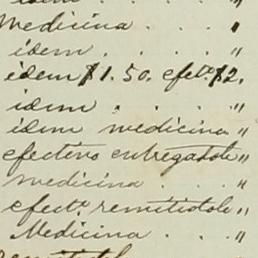 idem . . . "
Medicina . . "
idem . . . . "
idem $1.50. efect.o $2.
idem . . . . "
idem medicina "
efectivo entregadole "
medicina . . "
efect.o remitidole "
Medicina . . "
remitidole